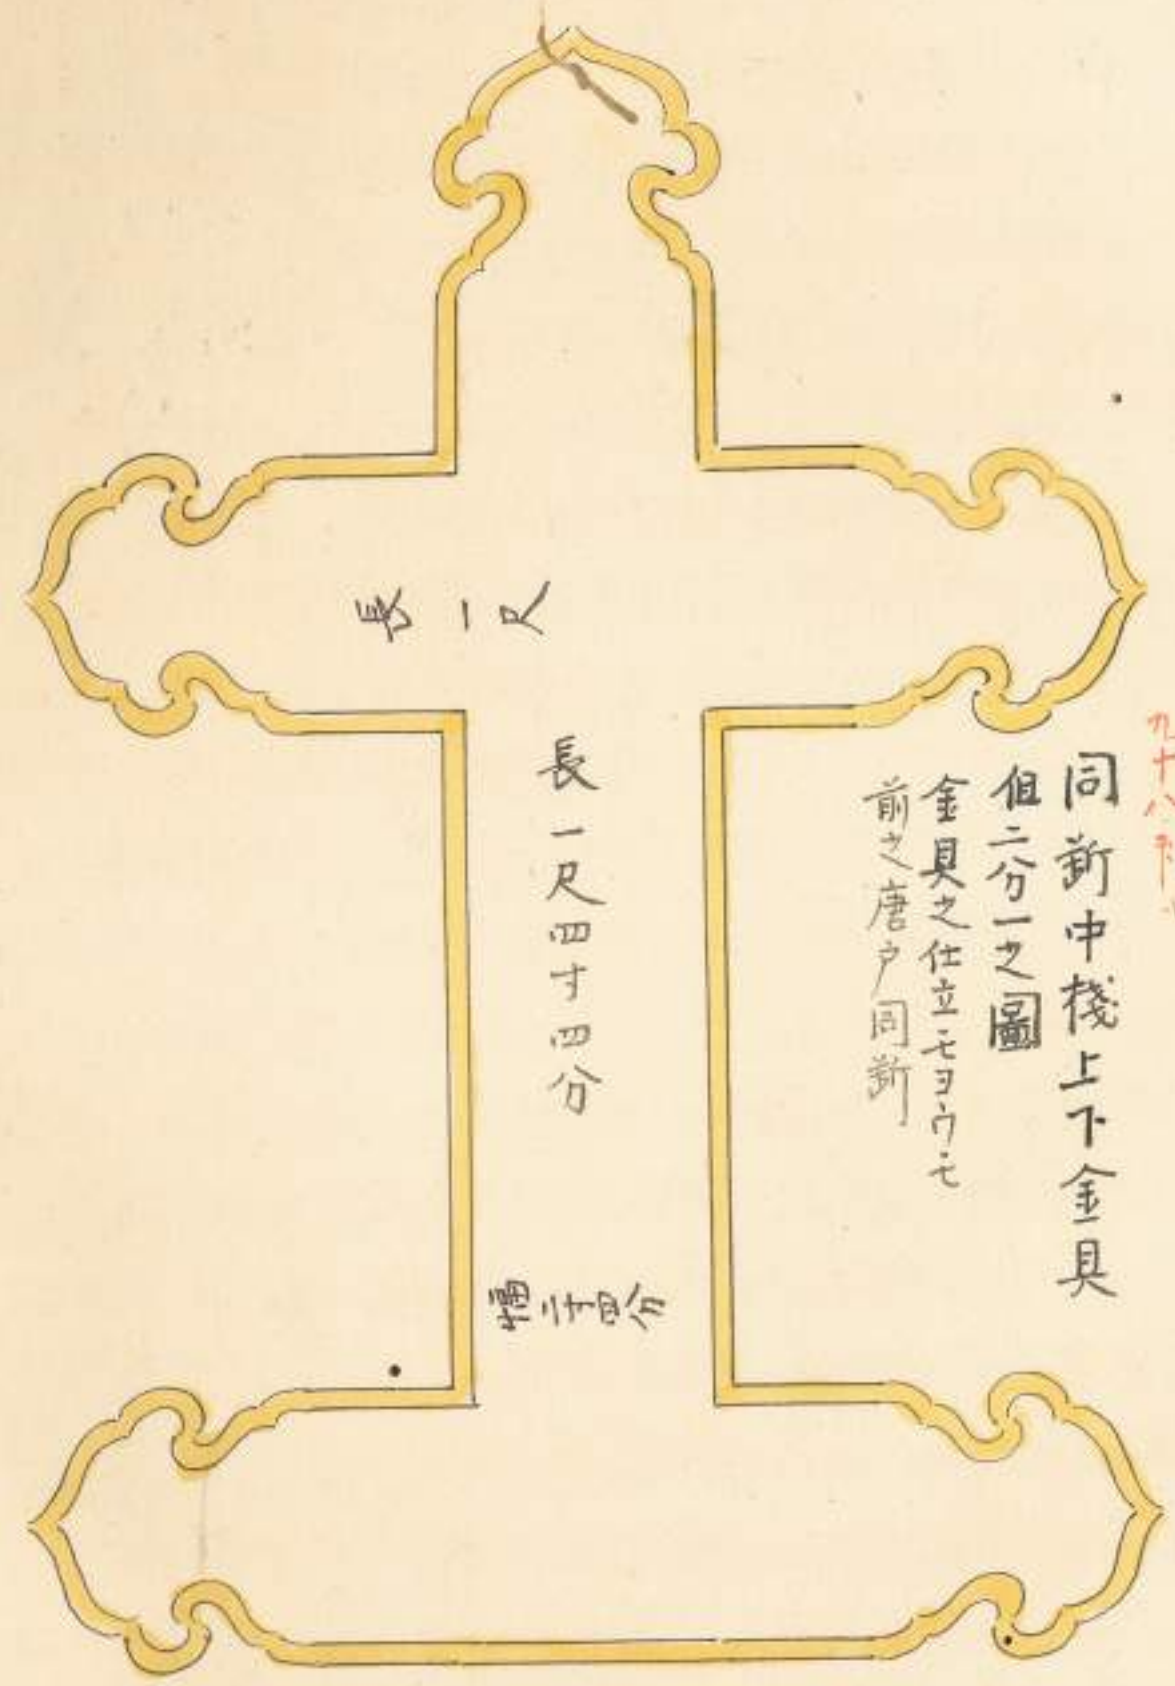 同断中棧上下金具
但二分一之圖
金具之仕立モヨウモ
前之唐戸同断
長一尺
長一尺四寸四分
幅二寸四分